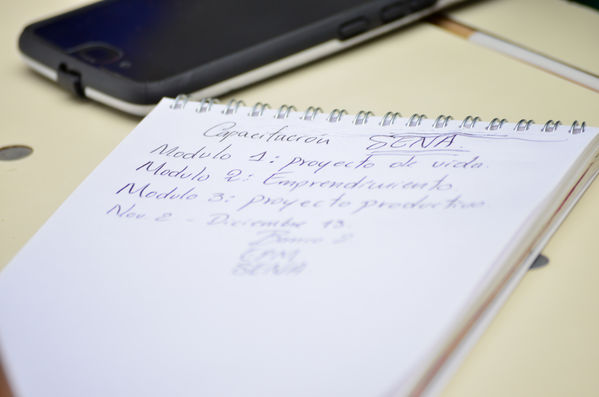 Capacitación SENA
Modulo 1: proyecto de vida.
Modulo 2: Emprendimiento
Modulo 3: proyecto productivo.
Nov. 2 - Diciembre 13.
EPM
SENA